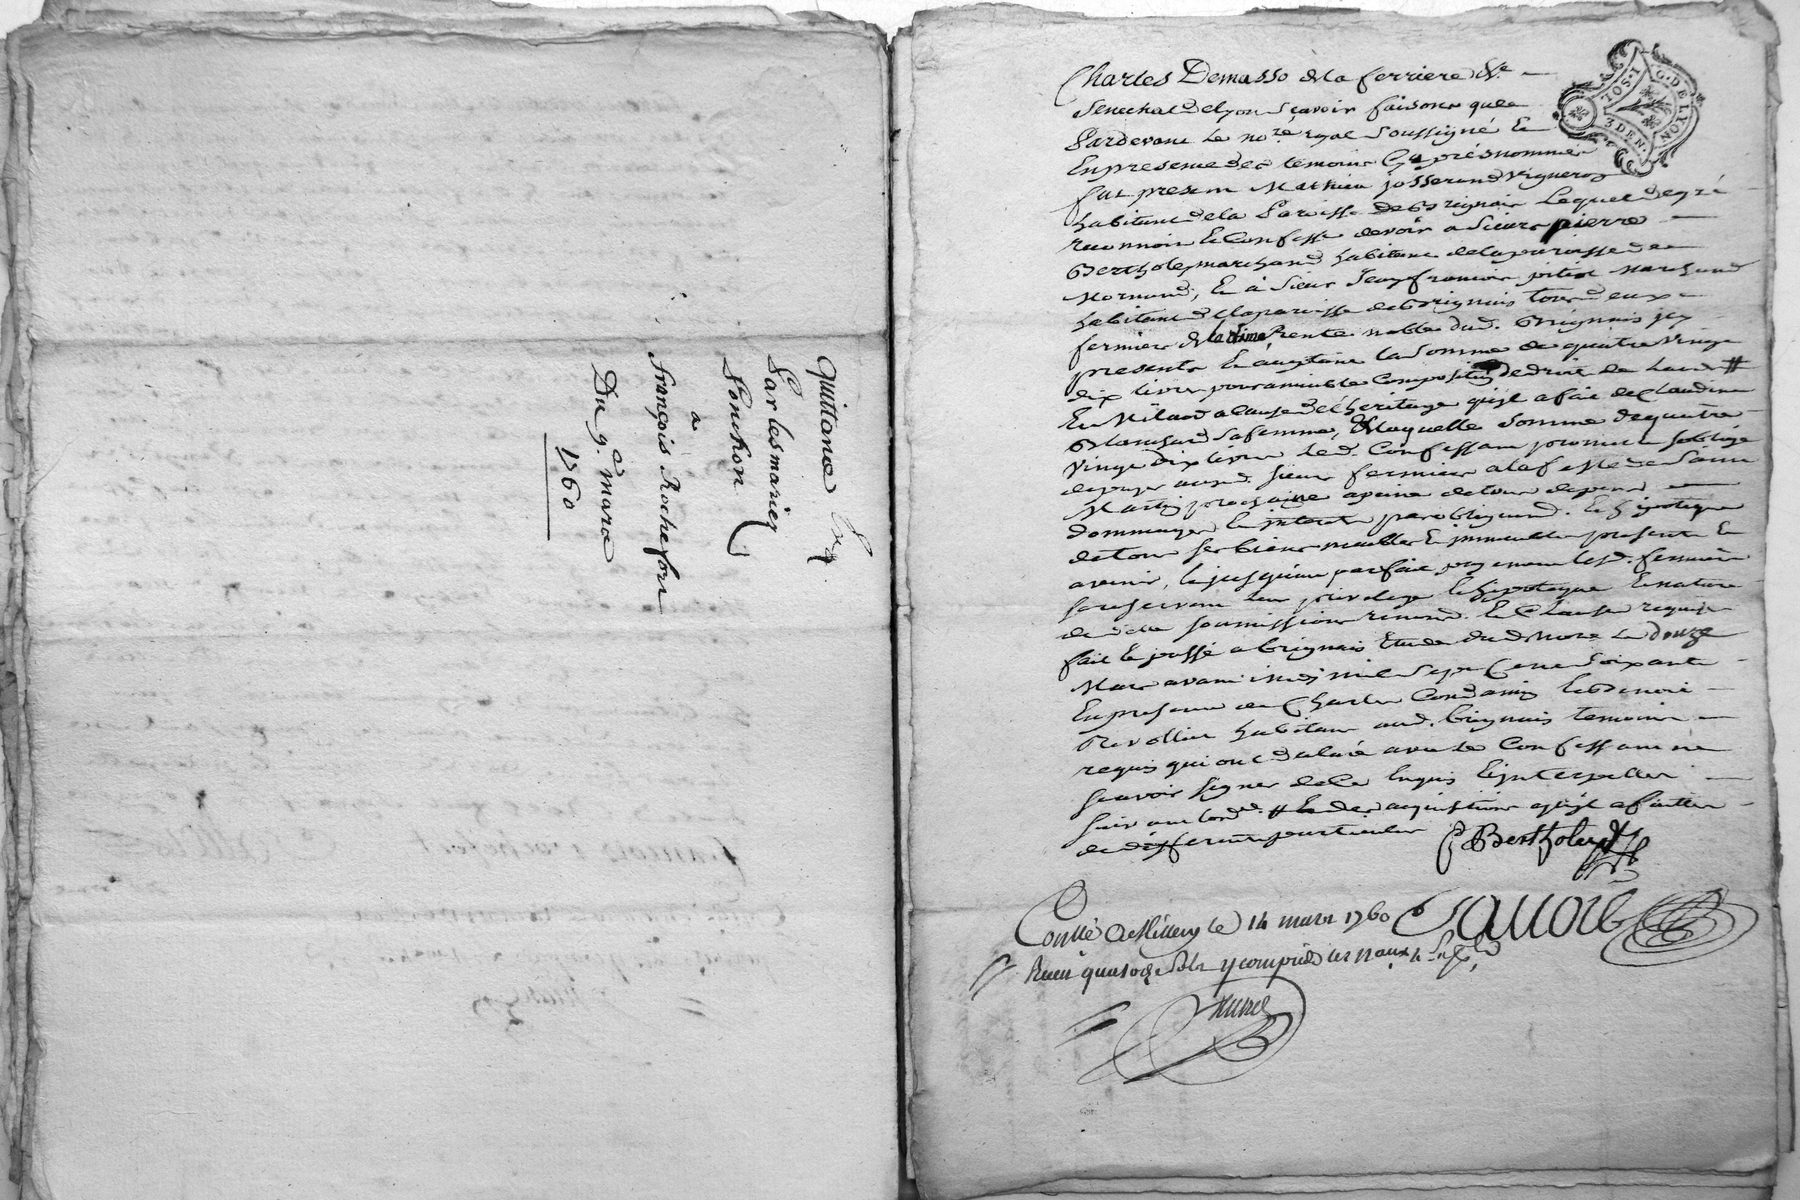 quittance Exp.
Par les mariez
Ponchon
a
françois Rochefort
Du 9e. mars
1760
G. DE LYON
10S.1
3 DEN.
Charles Demasso de la ferriere &c.
Senechal de Lyon Sçavoir faisons que
Pardevant le nore. royal Soussigné Et
En presence des temoins Cy aprés nommés
fut present Mathieu josserand Vigneron
habitant de la Paroisse de Brignais Lequel de gré
reconnoit Et Confesse devoir a Sieur pierre
Bertholey marchand habitant de la parroisse de
Mornand, Et à Sieur Jean françois pitiot Marchand
habitant de la paroisse de Brignais tous deux
fermiers de la dime, rente noble dud. Brignais jcy
presents Et acceptant la Somme de quatre Vingt
dix livres pour amiable Composition de droit de Laods #
En Milaod a Cause de l'héritage qu'jl a fait de Claudine
Blanchard Sa femme, de Laquelle Somme de quatre
Vingt dix livres led. Confessant promet Et S'oblige
de payer auxd. Sieurs fermiers a la feste de Saint
Martin prochaine apeine de tous depens
dommages Et interets par obligaon. Et hipoteque
de tous ses biens meubles Et jmmeubles presents Et
avenir, Et jusqu'au parfait payement lesd. fermiers
se reservent leur privilege Et hipoteque Et nature
de dette soumissions renonc. Et Clauses requises
fait Et passé a brignais Etude dud. Nore. Le douze
Mars avant midy mil Sept Cent Soixante
En presence de Charles Condamin Et Benoit
Revollier habitans aud. brignais temoins
requis qui ont déclaré avec le Confessant ne
Scavoir Signer de Ce Enquis Et jnterpellés
Suivant l'ordce. # Et des acquisitions qu'jl a faittes
de differents particuliers
P Bertholey
Conllé A Millery le 14 mars 1760
Savoie
Reçu quatorze sols y compris les nouvx 4 s. pr. l.